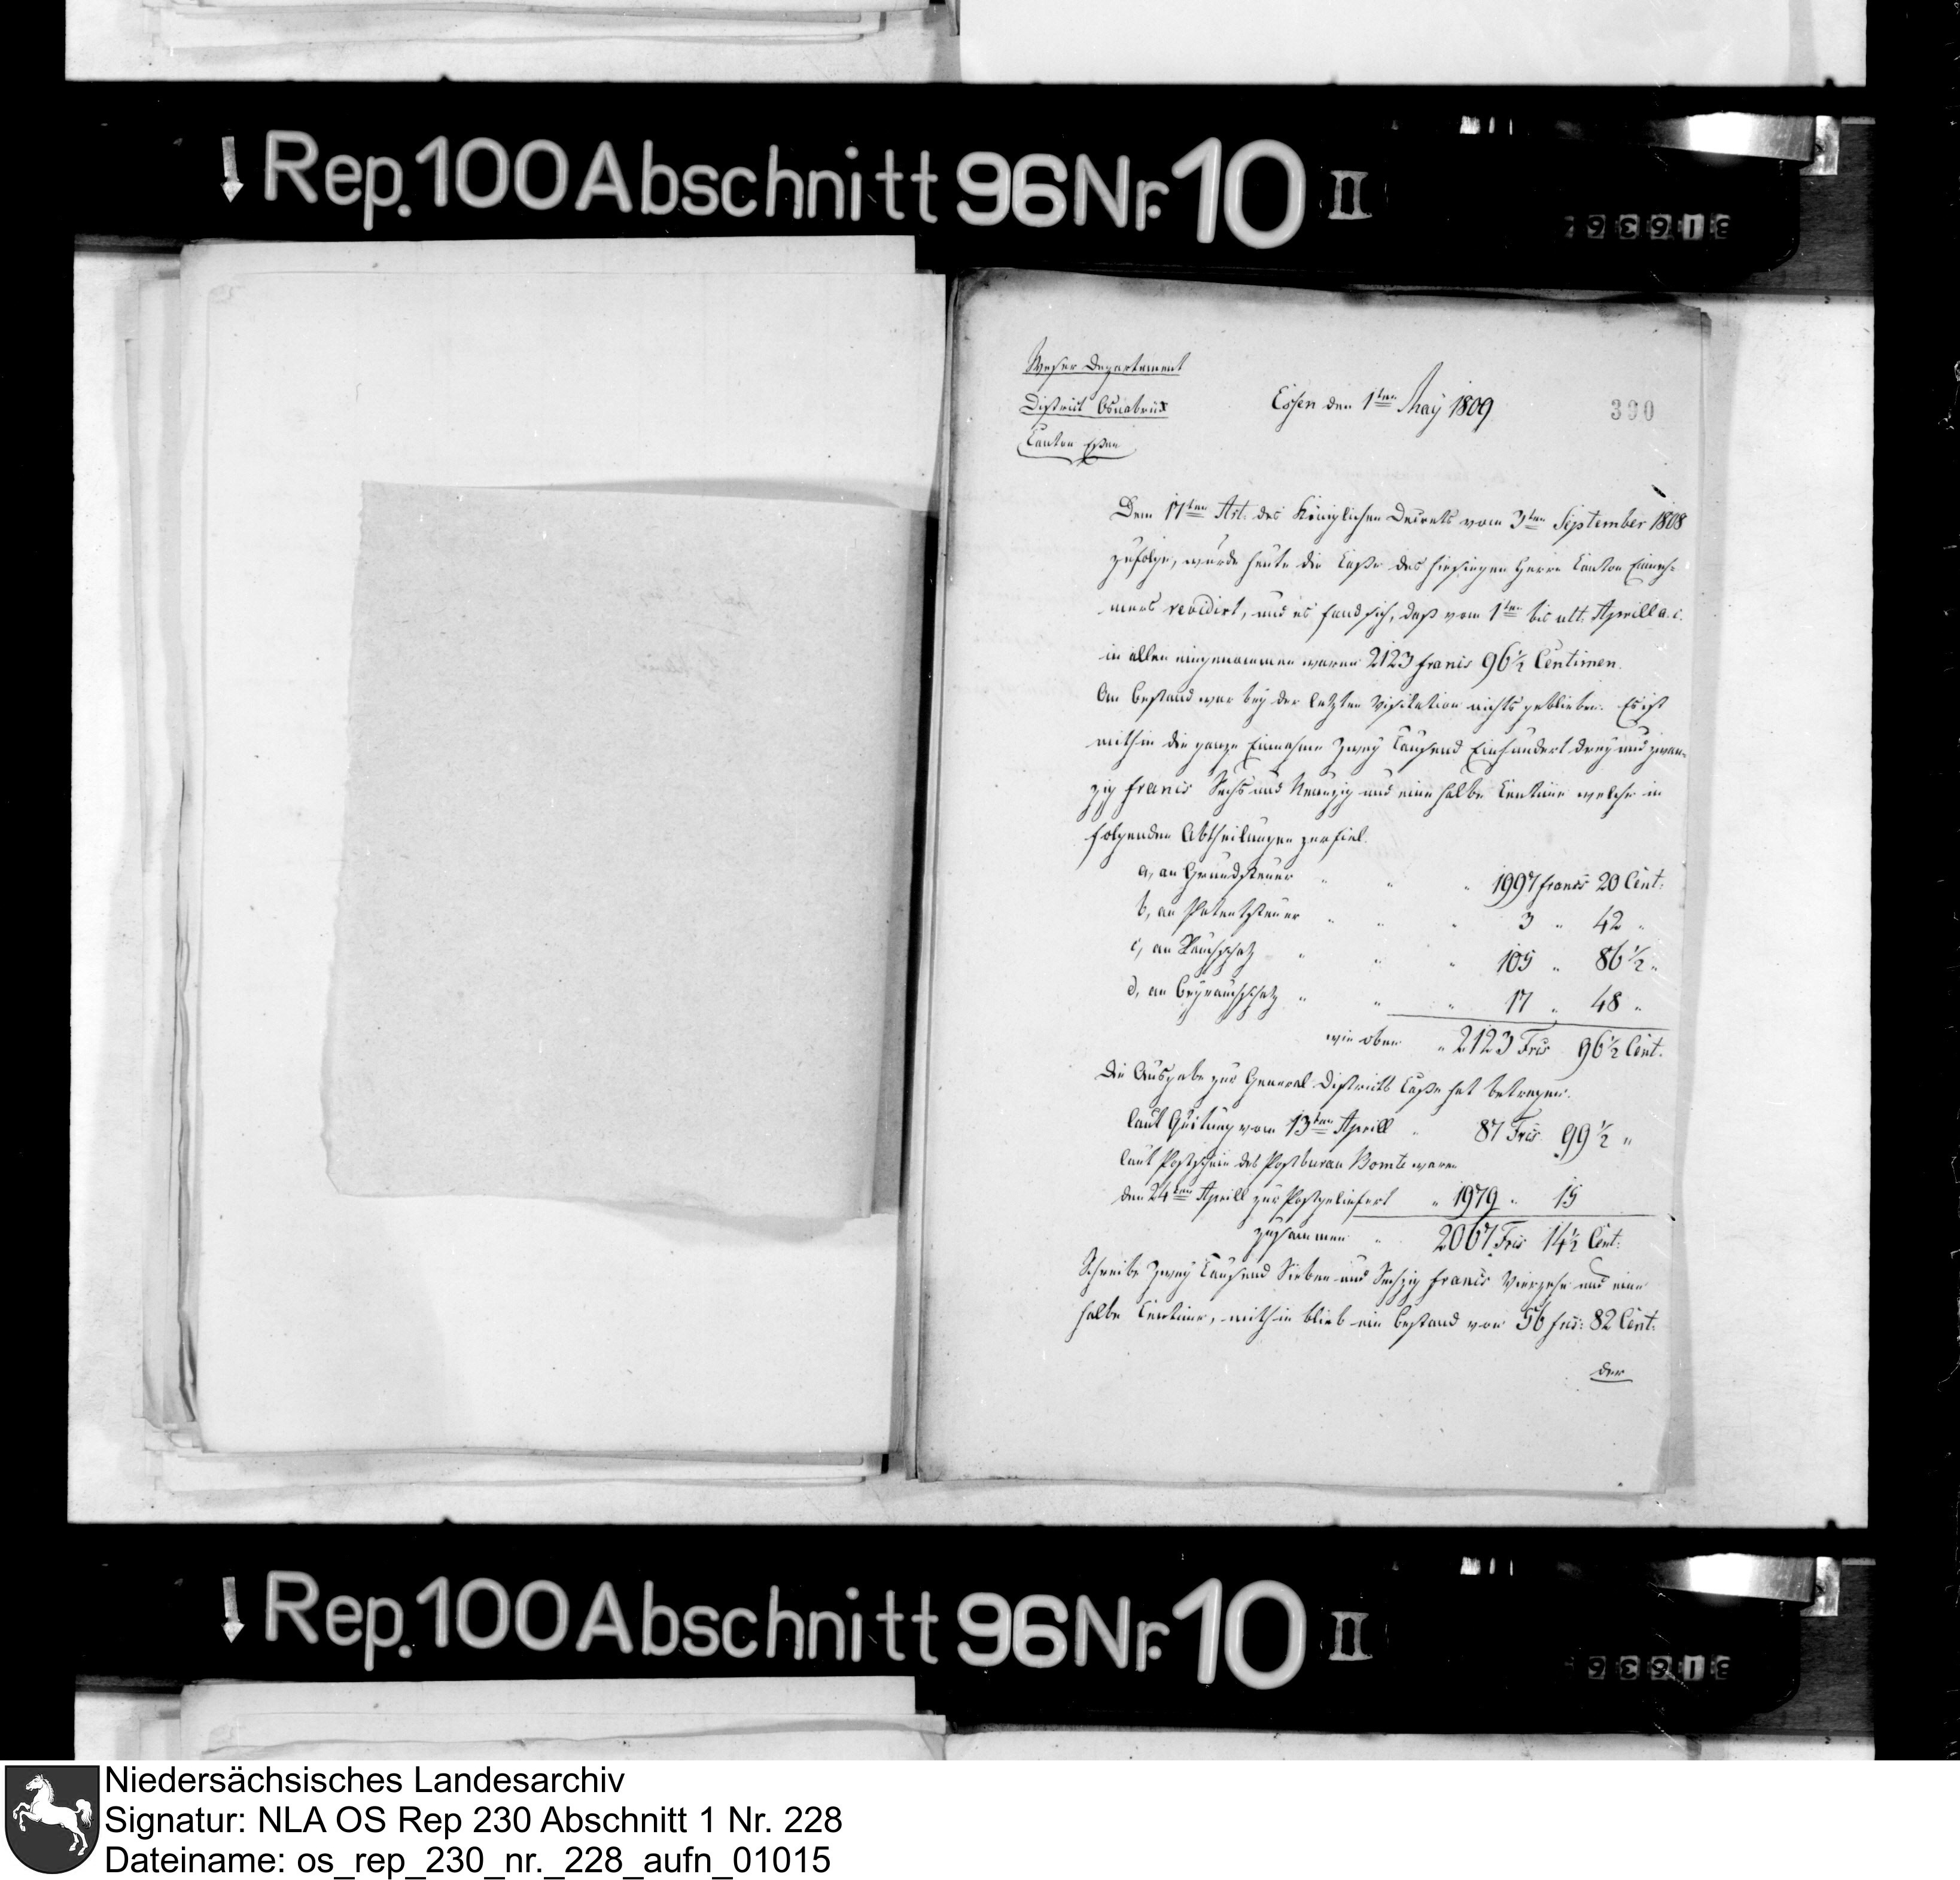 Rep. 100 Abschnitt 96 Nr. 10 II
Weser Departement
District Osnabrük
Canton Eßen
Essen den 1ten May 1809
390
Dem 17ten Art. des Königlichen Decrets vom 3ten September 1808
zufolge, wurde heute die Caße des hiesigen Herrn Canton Einneh-
mers revidirt, und es fand sich, daß vom 1ten bis ult. Aprill a. c.
in allen eingenommen waren 2123 francs 96 1/2 Centimen.
An Bestand war bey der letzten Visitation nichts geblieben. Es ist
mithin die ganze Einnahme Zwey Tausend Einhundert drey und zwan-
zig francs Sechs und Neunzig und eine halbe Centime welche in
folgenden Abtheilungen zerfiel.
a, an Grundsteuer " " " 1997 francs 20 Cent:
b, an Patentsteuer " " " 3 " 42 "
c, an Rauchschatz " " " 105 " 86 1/2 "
d, an Beyrauchschatz " " " 17 " 48 "
wie oben " 2123 Frcs 96 1/2 Cent.
Die Ausgabe zur General Districts Caße hat betragen.
laut Quitung vom 13ten Aprill " 87 Frcs 99 1/2 "
laut Postschein des Postbureau Bomte waren
den 24ten Aprill zur Post geliefert " 1979 " 15
zusammen " 2067 Frcs 14 1/2 Cent:
Schreibe Zwey Tausend Sieben und Sechzig francs Vierzehn und eine
halbe Centime, mithin blieb ein Bestand von 56 frcs: 82 Cent:
der
Rep. 100 Abschnitt 96 Nr. 10 II
Niedersächsisches Landesarchiv
Signatur: NLA OS Rep 230 Abschnitt 1 Nr. 228
Dateiname: os_rep_230_nr._228_aufn_01015